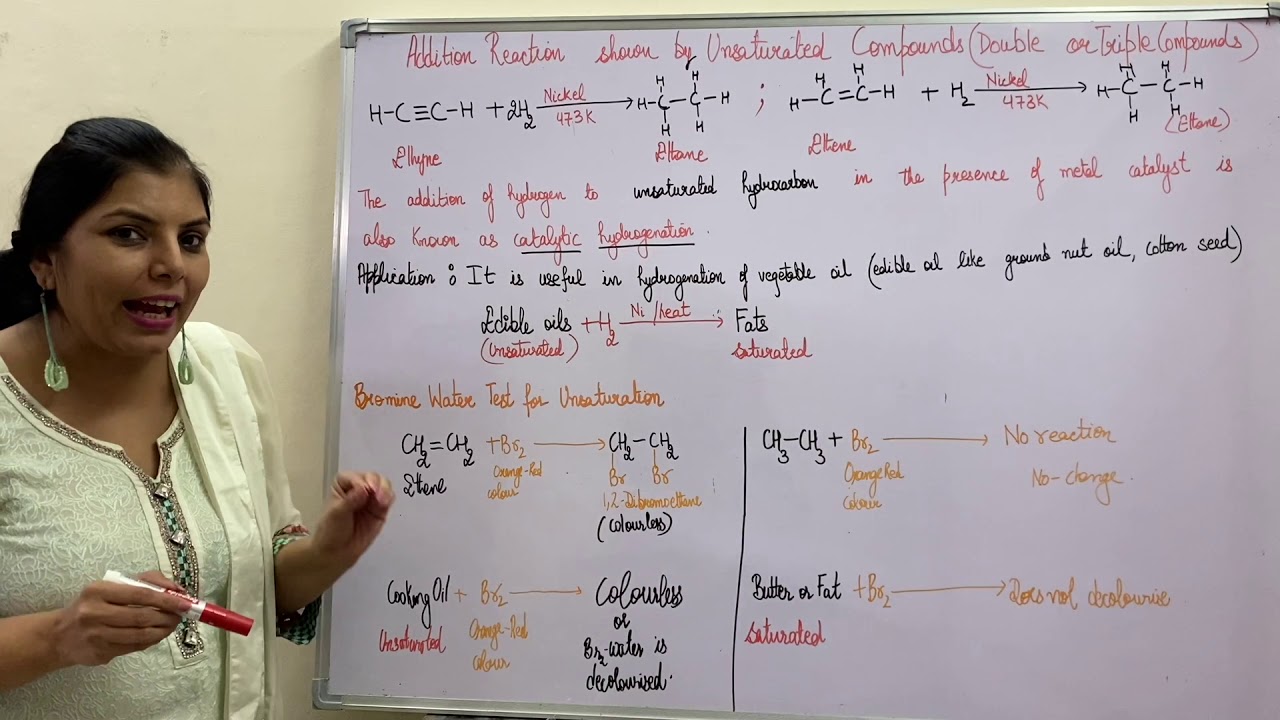 Addition Reaction shown by Unsaturated Compounds (Double or Triple Compounds)
H-C≡C-H + 2H2 Nickel 473K → H-C-C-H H H H H ; H-C=C-H H H + H2 Nickel 473K → H-C-C-H H H H H
Ethyne Ethane Ethene (Ethane)
The addition of hydrogen to unsaturated hydrocarbon in the presence of metal catalyst is
also known as catalytic hydrogenation.
Application : It is useful in hydrogenation of vegetable oil (edible oil like ground nut oil, cotton seed)
Edible oils + H2 Ni/heat → Fats
(Unsaturated) saturated
Bromine Water Test for Unsaturation
CH2=CH2 + Br2 → CH2-CH2
Ethene Orange-Red colour Br Br
1,2-Dibromoethane
(colourless)
CH3-CH3 + Br2 → No reaction
Orange Red colour No-change.
Cooking Oil + Br2 → Colourless
Unsaturated Orange-Red colour or
Br2-water is
decolourised.
Butter or Fat + Br2 → Does not decolourise
Saturated